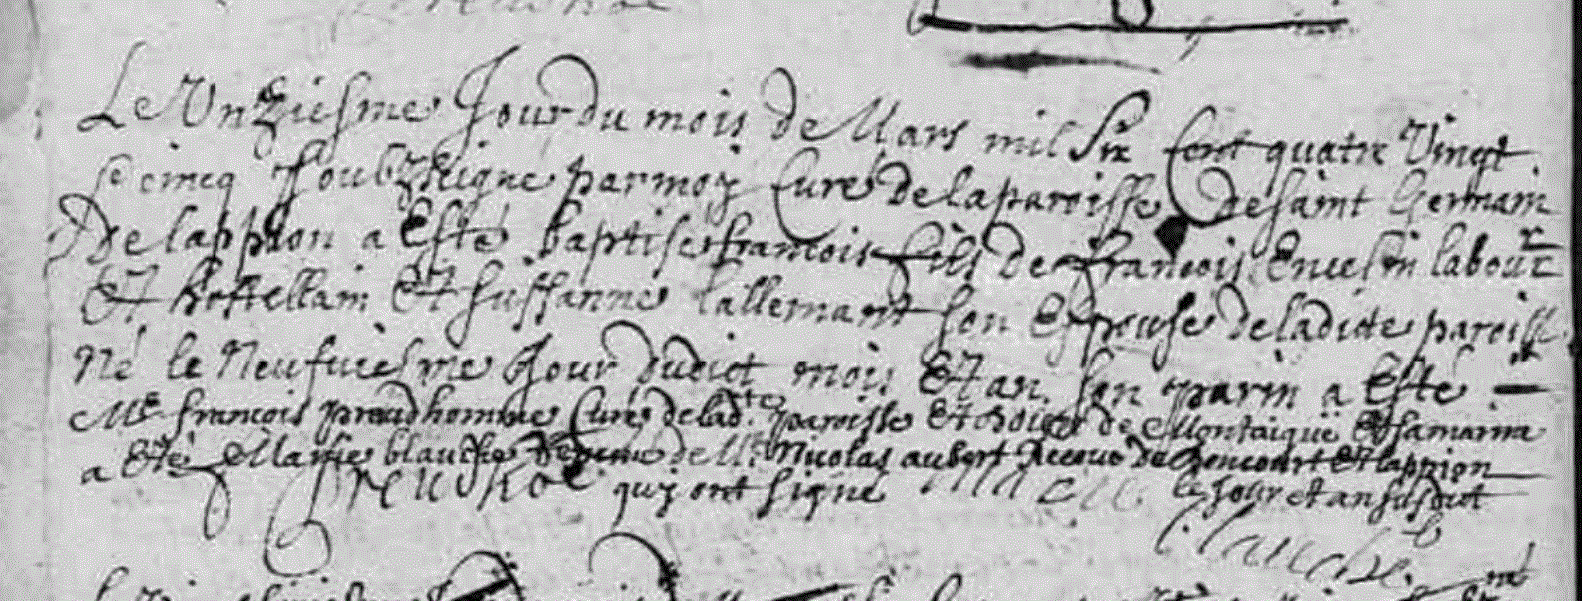 Le Unziesme Jour du mois de Mars mil Six cent quatre Vingt
et cincq Soubzsigne par moy Curé de la paroisse de saint Germain
De lappion a Esté baptisé francois fils de francois labour
Et hostellain Et Sussanne lallemant son Espouse de ladicte paroisse
Né le Neufuiesme Jour dudict mois Et an son parin a Esté
Mre francois preudhomme Curé de ladte paroisse Et de Montaigue Et sa marinne
a Eté Marie blanche femme de Mre Nicolas aubert de Et lappion
quy ont signe le Jour et an susdict